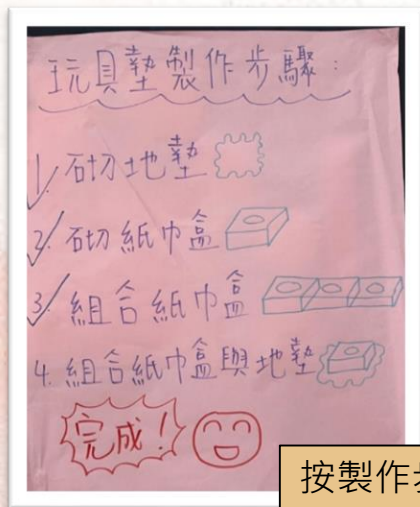 玩具墊製作步驟：
1. 砌地墊
2. 砌紙巾盒
3. 組合紙巾盒
4. 組合紙巾盒與地墊
完成！
按製作步